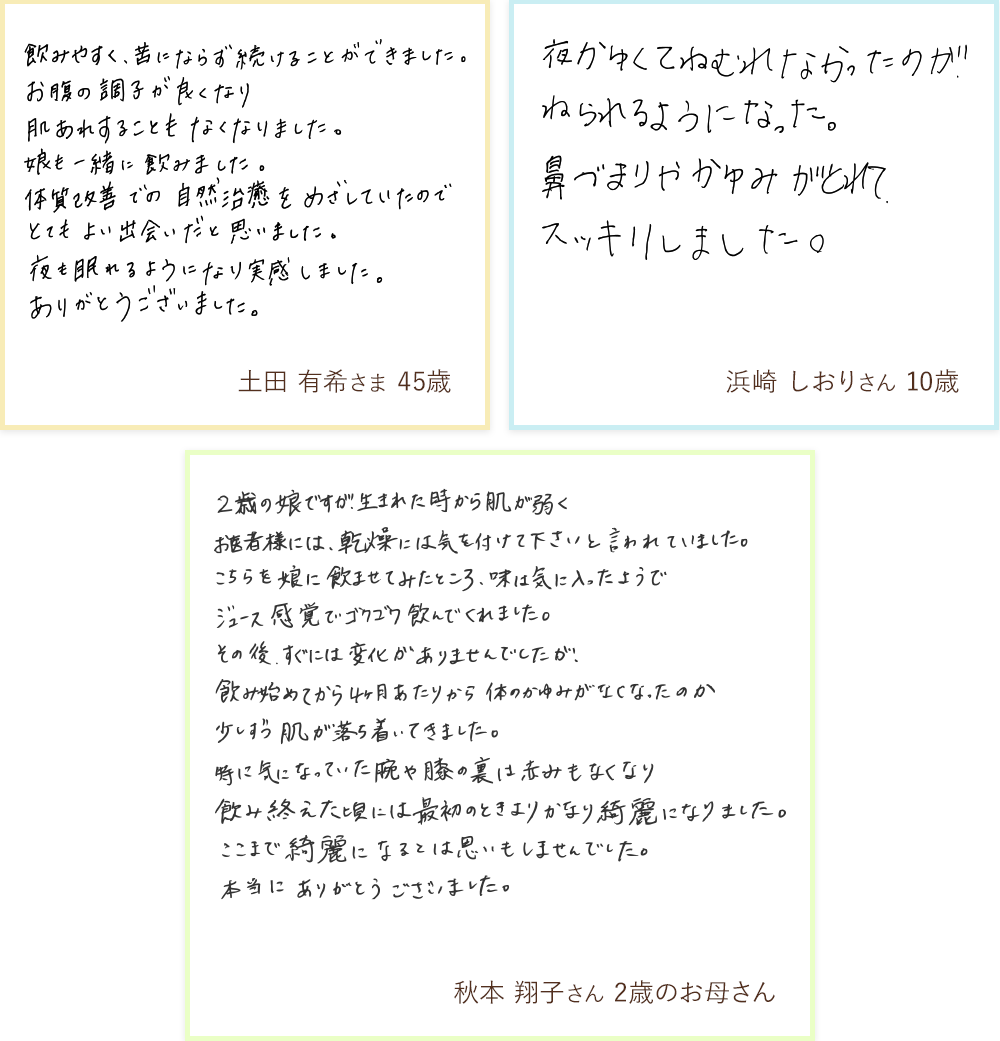 飲みやすく、苦にならず続けることができました。
お腹の調子が良くなり
肌あれすることもなくなりました。
娘も一緒に飲みました。
体質改善での自然治癒をめざしていたので
とてもよい出会いだと思いました。
夜も眠れるようになり実感しました。
ありがとうございました。
土田 有希さま 45歳
夜かゆくてねむれなかったのが、
ねられるようになった。
鼻づまりやかゆみがとれて、
スッキリしました。
浜崎 しおりさん 10歳
2歳の娘ですが、生まれた時から肌が弱く
お医者様には、乾燥には気を付けて下さいと言われていました。
こちらを娘に飲ませてみたところ、味は気に入ったようで
ジュース感覚でゴクゴク飲んでくれました。
その後、すぐには変化がありませんでしたが、
飲み始めてから4ヶ月あたりから体のかゆみがなくなったのか
少しずつ肌が落ち着いてきました。
特に気になっていた腕や膝の裏は赤みもなくなり
飲み終えた頃には最初のときよりかなり綺麗になりました。
ここまで綺麗になるとは思いもしませんでした。
本当にありがとうございました。
秋本 翔子さん 2歳のお母さん